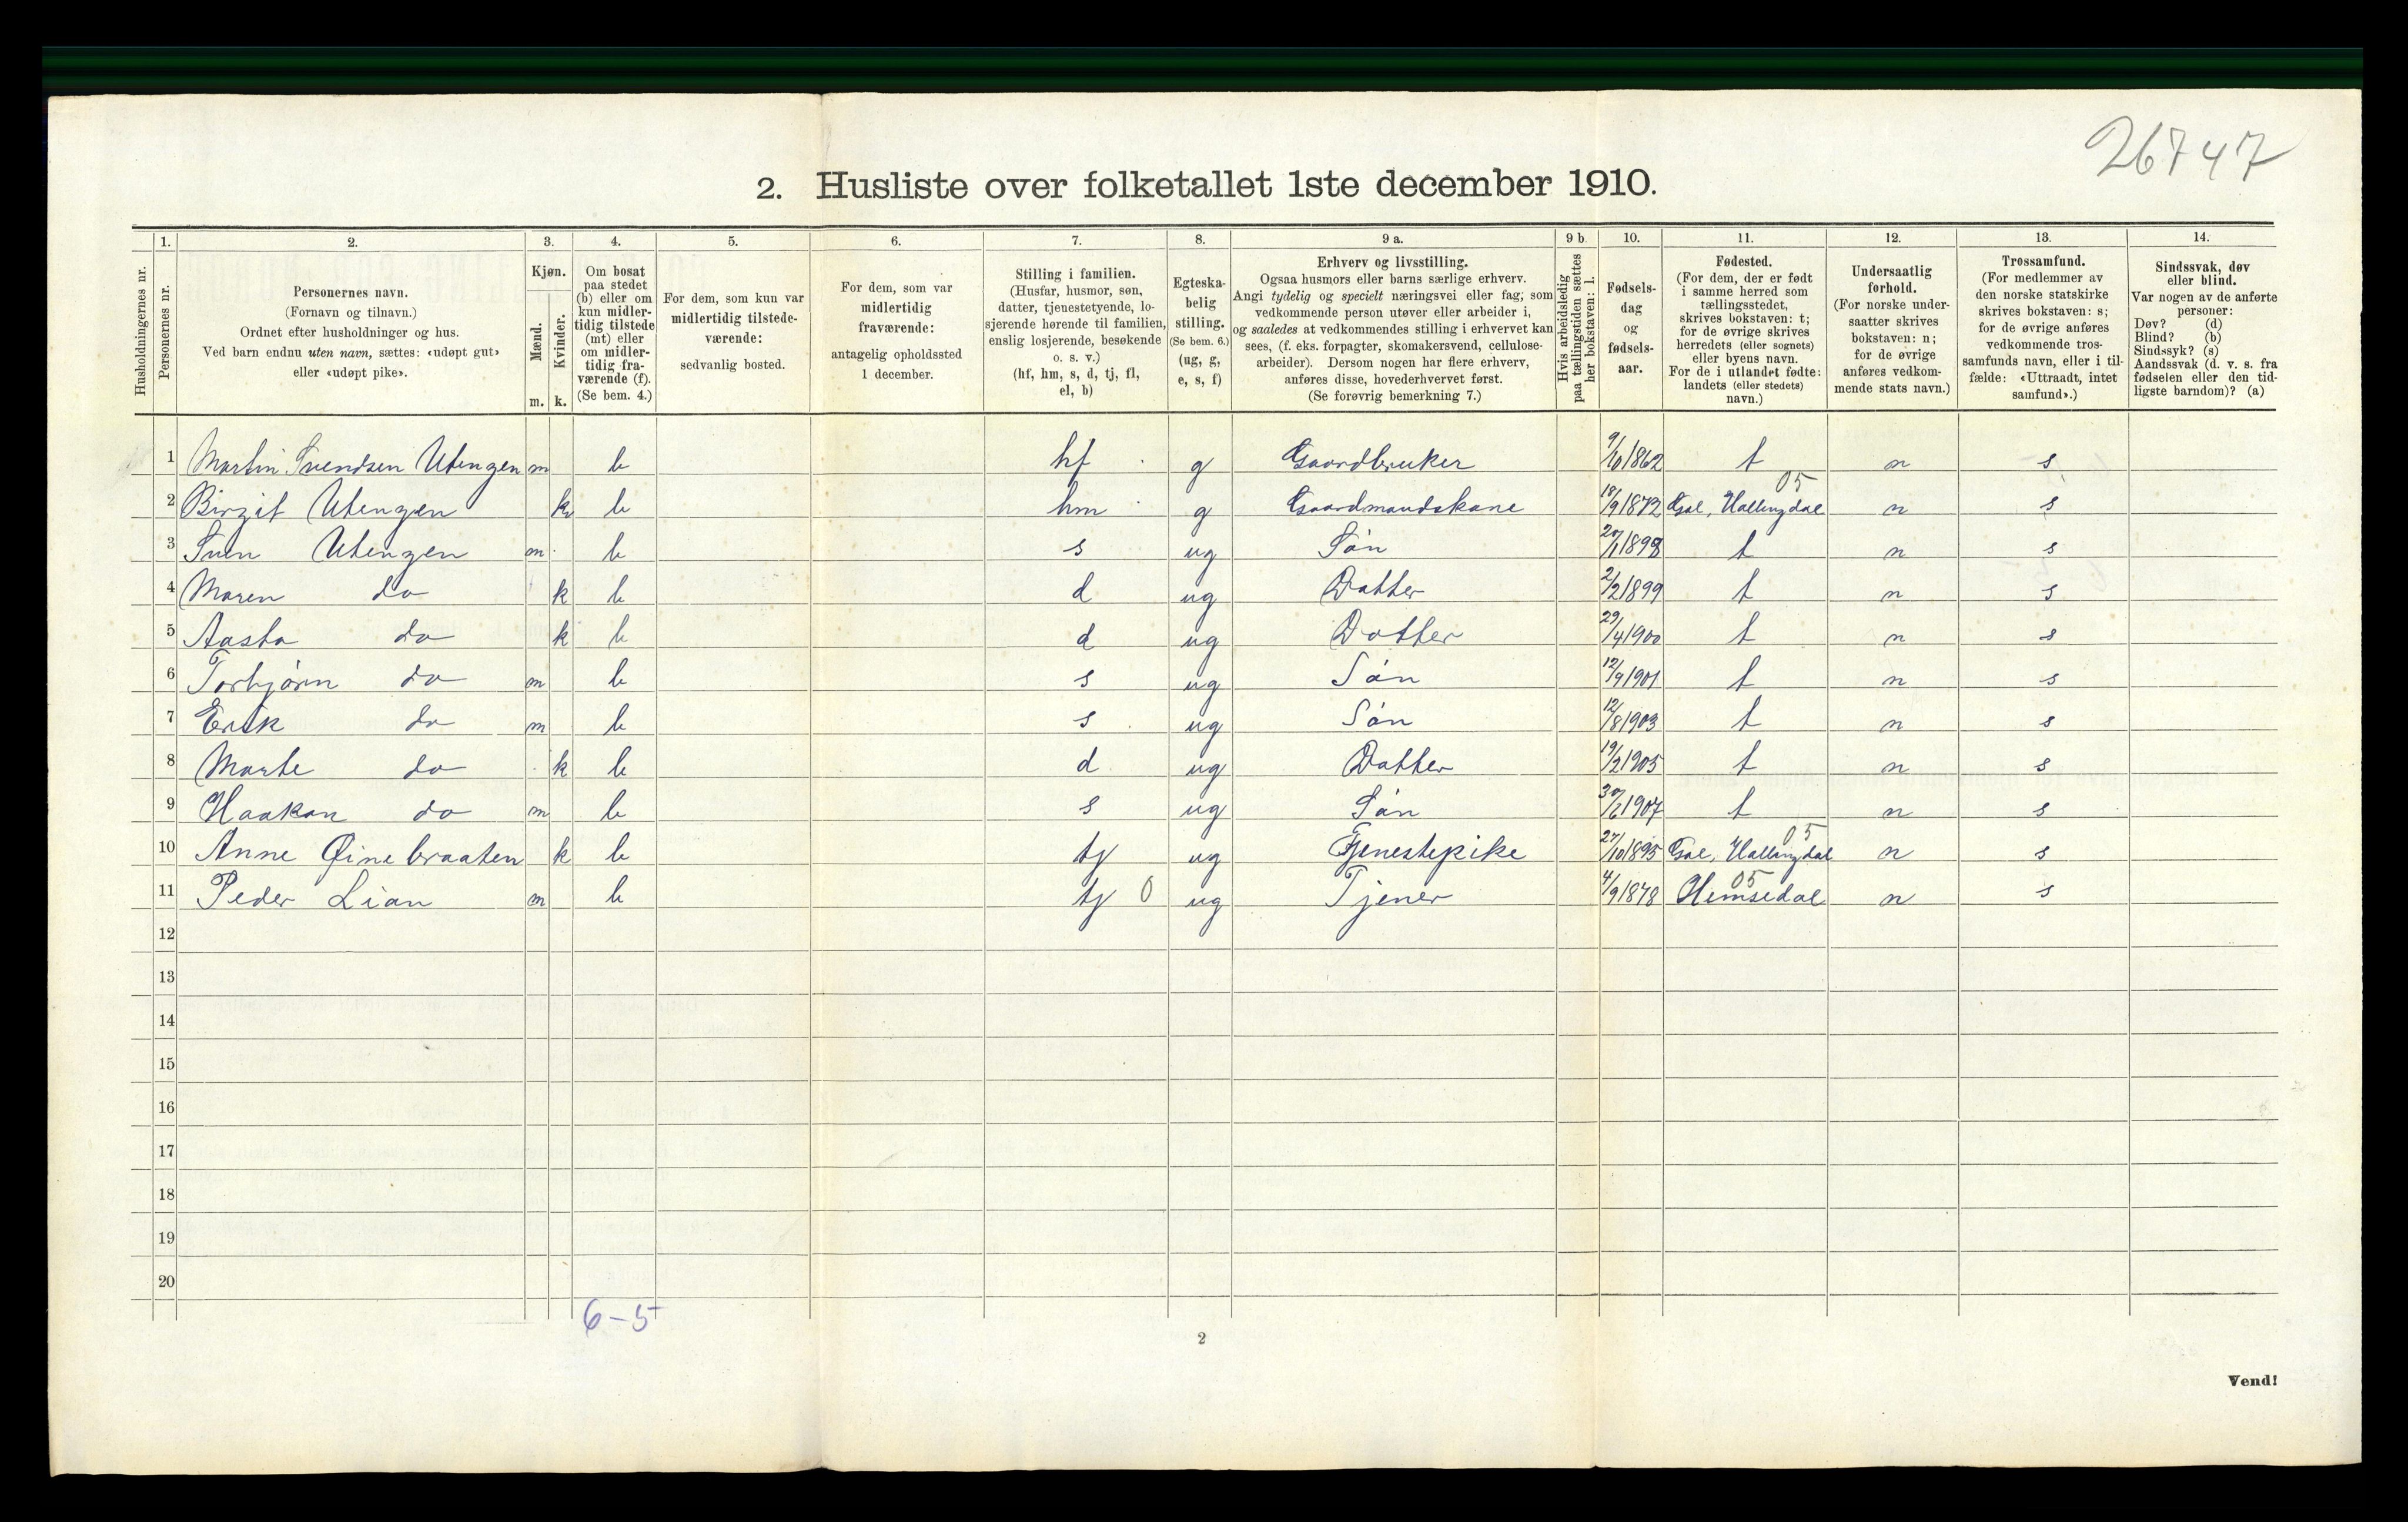 26747
2. Husliste over folketallet 1ste december 1910.
1. 2. 3. 4. 5. 6. 7. 8. 9 a. 9 b. 10. 11. 12. 13. 14.
Husholdningernes nr.
Personernes nr.
Personernes navn.
(Fornavn og tilnavn.)
Ordnet efter husholdninger og hus.
Ved barn endnu uten navn, sættes: «udøpt gut»
eller «udøpt pike».
Kjøn.
Mænd.
Kvinder.
m. k.
Om bosat
paa stedet
(b) eller om
kun midler-
tidig tilstede
(mt) eller
om midler-
tidig fra-
værende (f).
(Se bem. 4.)
For dem, som kun var
midlertidig tilstede-
værende:
sedvanlig bosted.
For dem, som var
midlertidig
fraværende:
antagelig opholdssted
1 december.
Stilling i familien.
(Husfar, husmor, søn,
datter, tjenestetyende, lo-
sjerende hørende til familien,
enslig losjerende, besøkende
o. s. v.)
(hf, hm, s, d, tj, fl,
el, b)
Egteska-
belig
stilling.
(Se bem. 6.)
(ug, g,
e, s, f)
Erhverv og livsstilling.
Ogsaa husmors eller barns særlige erhverv.
Angi tydelig og specielt næringsvei eller fag, som
vedkommende person utøver eller arbeider i,
og saaledes at vedkommendes stilling i erhvervet kan
sees, (f. eks. forpagter, skomakersvend, cellulose-
arbeider). Dersom nogen har flere erhverv,
anføres disse, hovederhvervet først.
(Se forøvrig bemerkning 7.)
Hvis arbeidsledig
paa tællingstiden sættes
her bokstaven: l.
Fødsels-
dag
og
fødsels-
aar.
Fødested.
(For dem, der er født
i samme herred som
tællingsstedet,
skrives bokstaven: t;
for de øvrige skrives
herredets (eller sognets)
eller byens navn.
For de i utlandet fødte:
landets (eller stedets)
navn.)
Undersaatlig
forhold.
(For norske under-
saatter skrives
bokstaven: n;
for de øvrige
anføres vedkom-
mende stats navn.)
Trossamfund.
(For medlemmer av
den norske statskirke
skrives bokstaven: s;
for de øvrige anføres
vedkommende tros-
samfunds navn, eller i til-
fælde: «Uttraadt, intet
samfund».)
Sindssvak, døv
eller blind.
Var nogen av de anførte
personer:
Døv? (d)
Blind? (b)
Sindssyk? (s)
Aandssvak (d. v. s. fra
fødselen eller den tid-
ligste barndom)? (a)
1 Martin Svendsen Utengen m b hf g Gaardbruker 9/10 1862 t n s
2 Birgit Utengen k b hm g Gaardmandskone 18/9 1872 Gol, Hallingdal 05 n s
3 Sven Utengen m b s ug Søn 20/1 1898 t n s
4 Maren do k b d ug Datter 2/2 1899 t n s
5 Aasta do k b d ug Datter 29/4 1900 t n s
6 Torbjørn do m b s ug Søn 12/9 1901 t n s
7 Erik do m b s ug Søn 12/8 1903 t n s
8 Marte do k b d ug Datter 19/2 1905 t n s
9 Haakon do m b s ug Søn 30/6 1907 t n s
10 Anne Øinebraaten k b tj ug Tjenestepike 27/10 1895 Gol, Hallingdal 05 n s
11 Peder Lian m b tj 0 ug Tjener 4/9 1878 Hemsedal 05 n s
12
13
14
15
16
17
18
19
20
6-5
2
Vend!